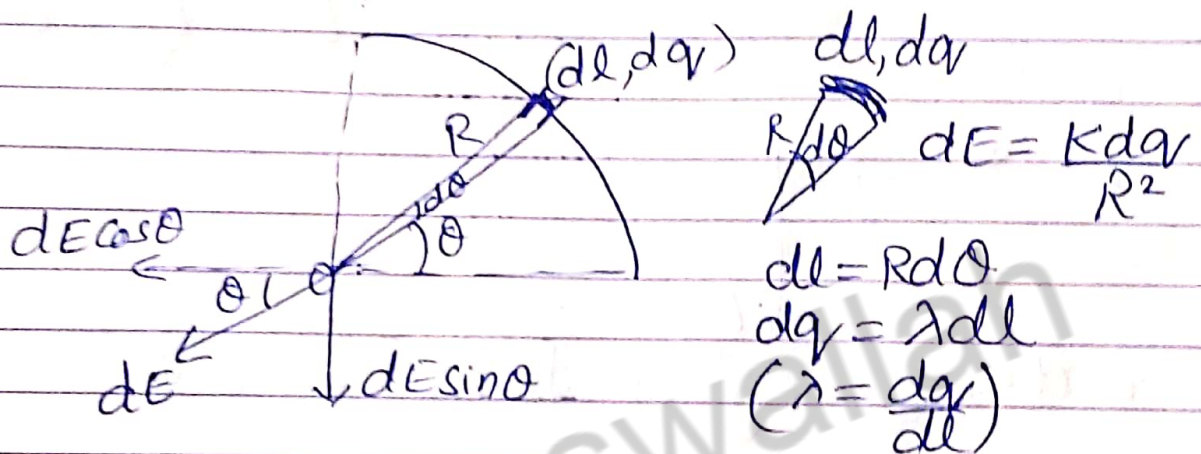 (dl, dq)
R
dθ
θ
O
dE cosθ
θ
dE
dE sinθ
dl, dq
R
dθ
dE = Kdq/R²
dl = Rdθ
dq = λdl
(λ = dq/dl)